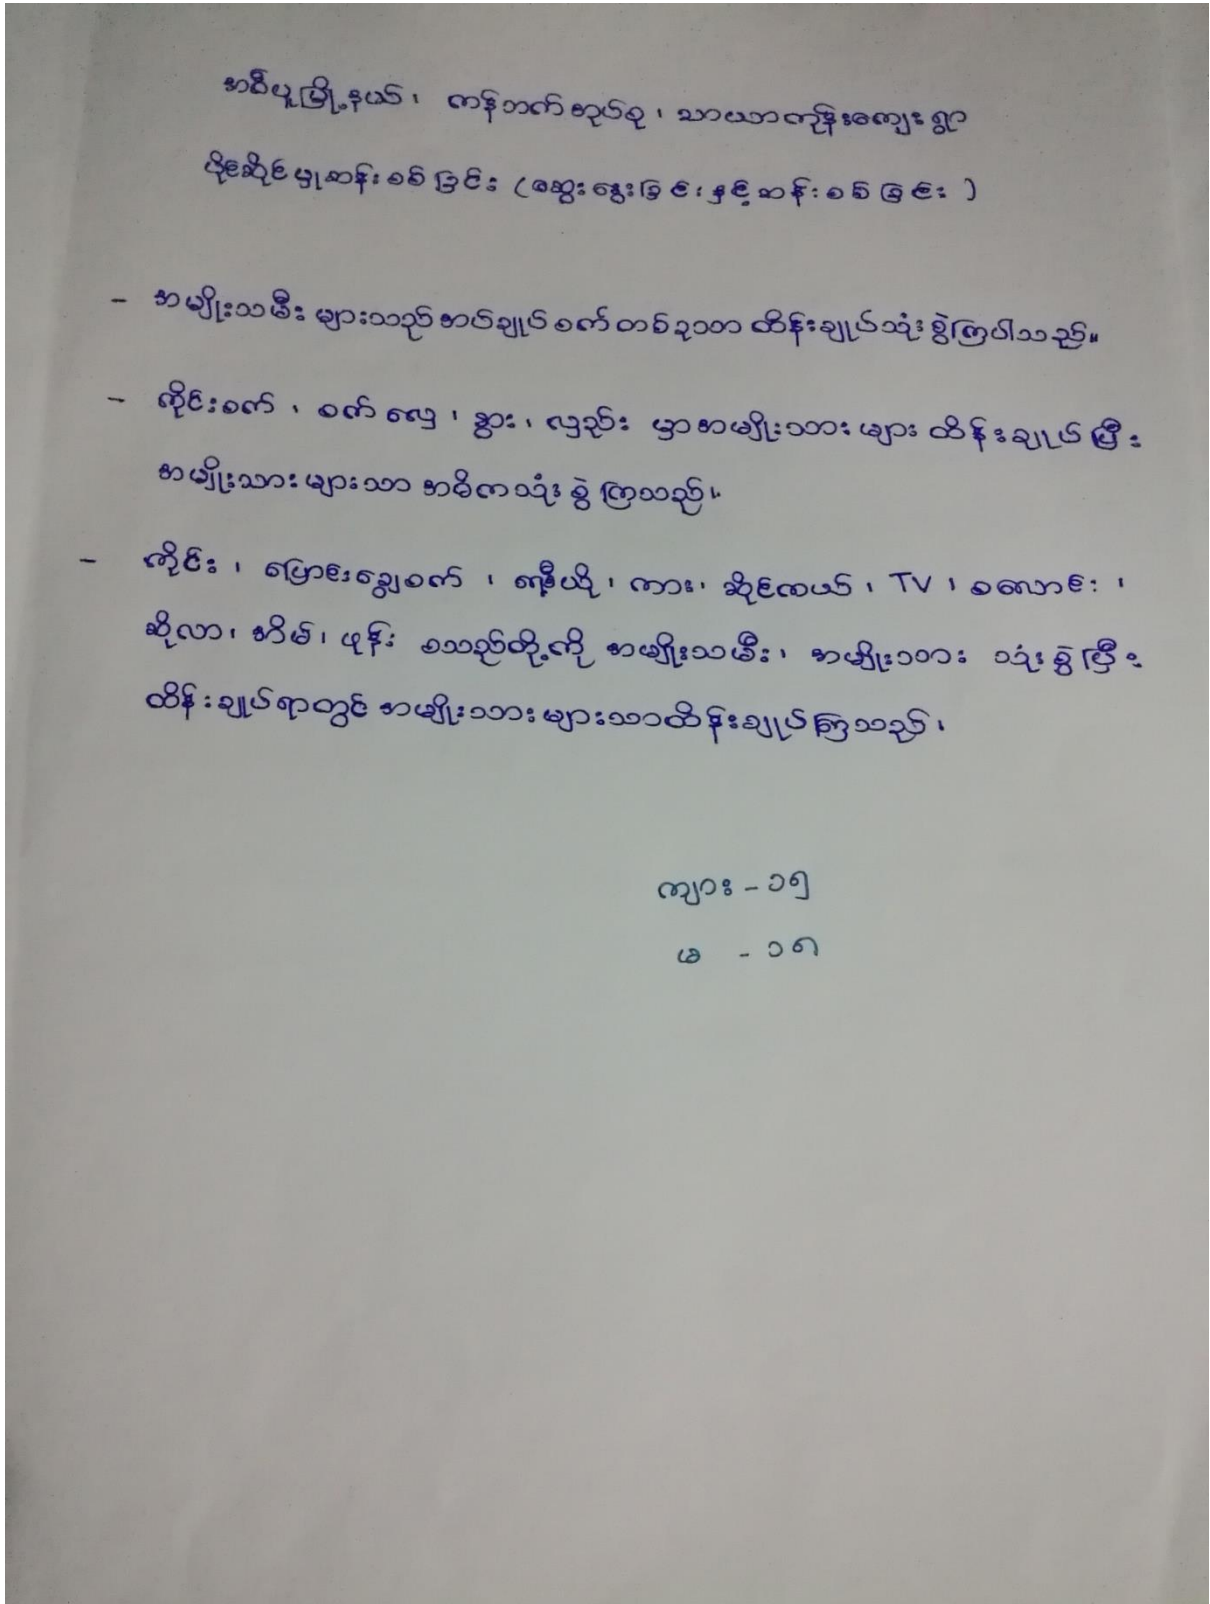 အင်္ဂပူမြို့နယ်၊ ကန်ဘက်အုပ်စု၊ သာယာကုန်းကျေးရွာ
ပိုင်ဆိုင်မှုဆန်းစစ်ခြင်း (ဆွေးနွေးခြင်းနှင့်ဆန်းစစ်ခြင်း)
- အမျိုးသမီးများသည်အပ်ချုပ်စက်တစ်ခုသာ ထိန်းချုပ်သုံးစွဲကြပါသည်။
- ကိုင်းစက်၊ စက်လှေ၊ နွား၊ လှည်း မှာအမျိုးသားများ ထိန်းချုပ်ပြီး
အမျိုးသားများသာ အဓိကသုံးစွဲကြသည်။
- ကိုင်း၊ ပြောင်းချွေစက်၊ ရေဒီယို၊ ကား၊ ဆိုင်ကယ်၊ TV၊ စလောင်း၊
ဆိုလာ၊ အိမ်၊ ဖုန်း စသည်တို့ကို အမျိုးသမီး၊ အမျိုးသား သုံးစွဲပြီး
ထိန်းချုပ်ရာတွင် အမျိုးသားများသာထိန်းချုပ်ကြသည်၊
ကျား - ၁၅
မ - ၁၈